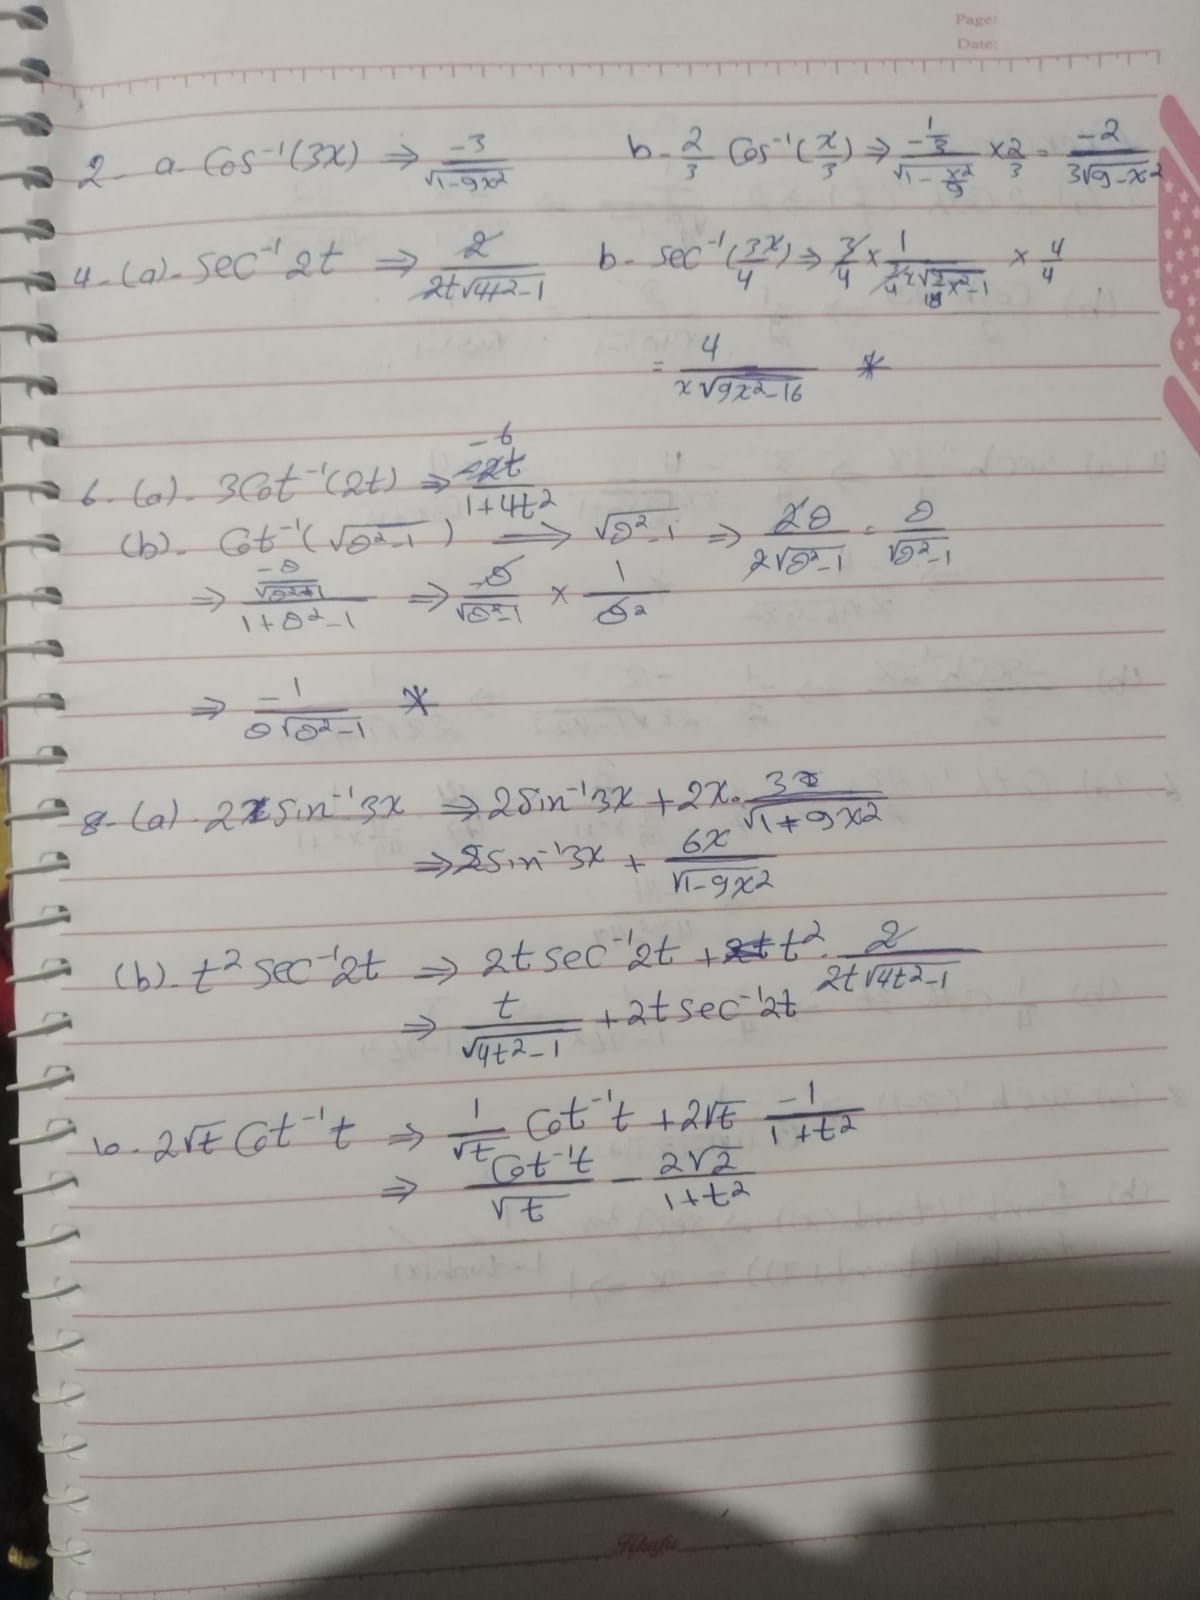 Page:
Date:
2- a- Cos⁻¹(3x) ⇒ -3/√1-9x² b- 2/3 Cos⁻¹(x/3) ⇒ -1/3/√1-x²/9 × 2/3 = -2/3√9-x²
4- (a)- sec⁻¹ 2t ⇒ 2/2t√4t²-1 b- sec⁻¹(3x/4) ⇒ 3/4 × 1/ × 4/4
= 4/x√9x²-16 *
6- (a)- 3Cot⁻¹(2t) ⇒ -6/1+4t²
(b)- Cot⁻¹(√θ²-1) ⇒ √θ²-1 ⇒ 2θ/2√θ²-1 = θ/√θ²-1
⇒ -θ/√θ²-1/1+θ²-1 ⇒ -θ/√θ²-1 × 1/θ²
⇒ -1/θ√θ²-1 *
8- (a)- 2x sin⁻¹3x ⇒ 2Sin⁻¹3x + 2x. 3/√1-9x²
⇒ 2Sin⁻¹3x + 6x/√1-9x²
(b)- t² sec⁻¹2t ⇒ 2t sec⁻¹2t + t². 2/2t√4t²-1
⇒ t/√4t²-1 + 2t sec⁻¹2t
10- 2√t Cot⁻¹t ⇒ 1/√t Cot⁻¹t + 2√t -1/1+t²
⇒ Cot⁻¹t/√t - 2√2/1+t²